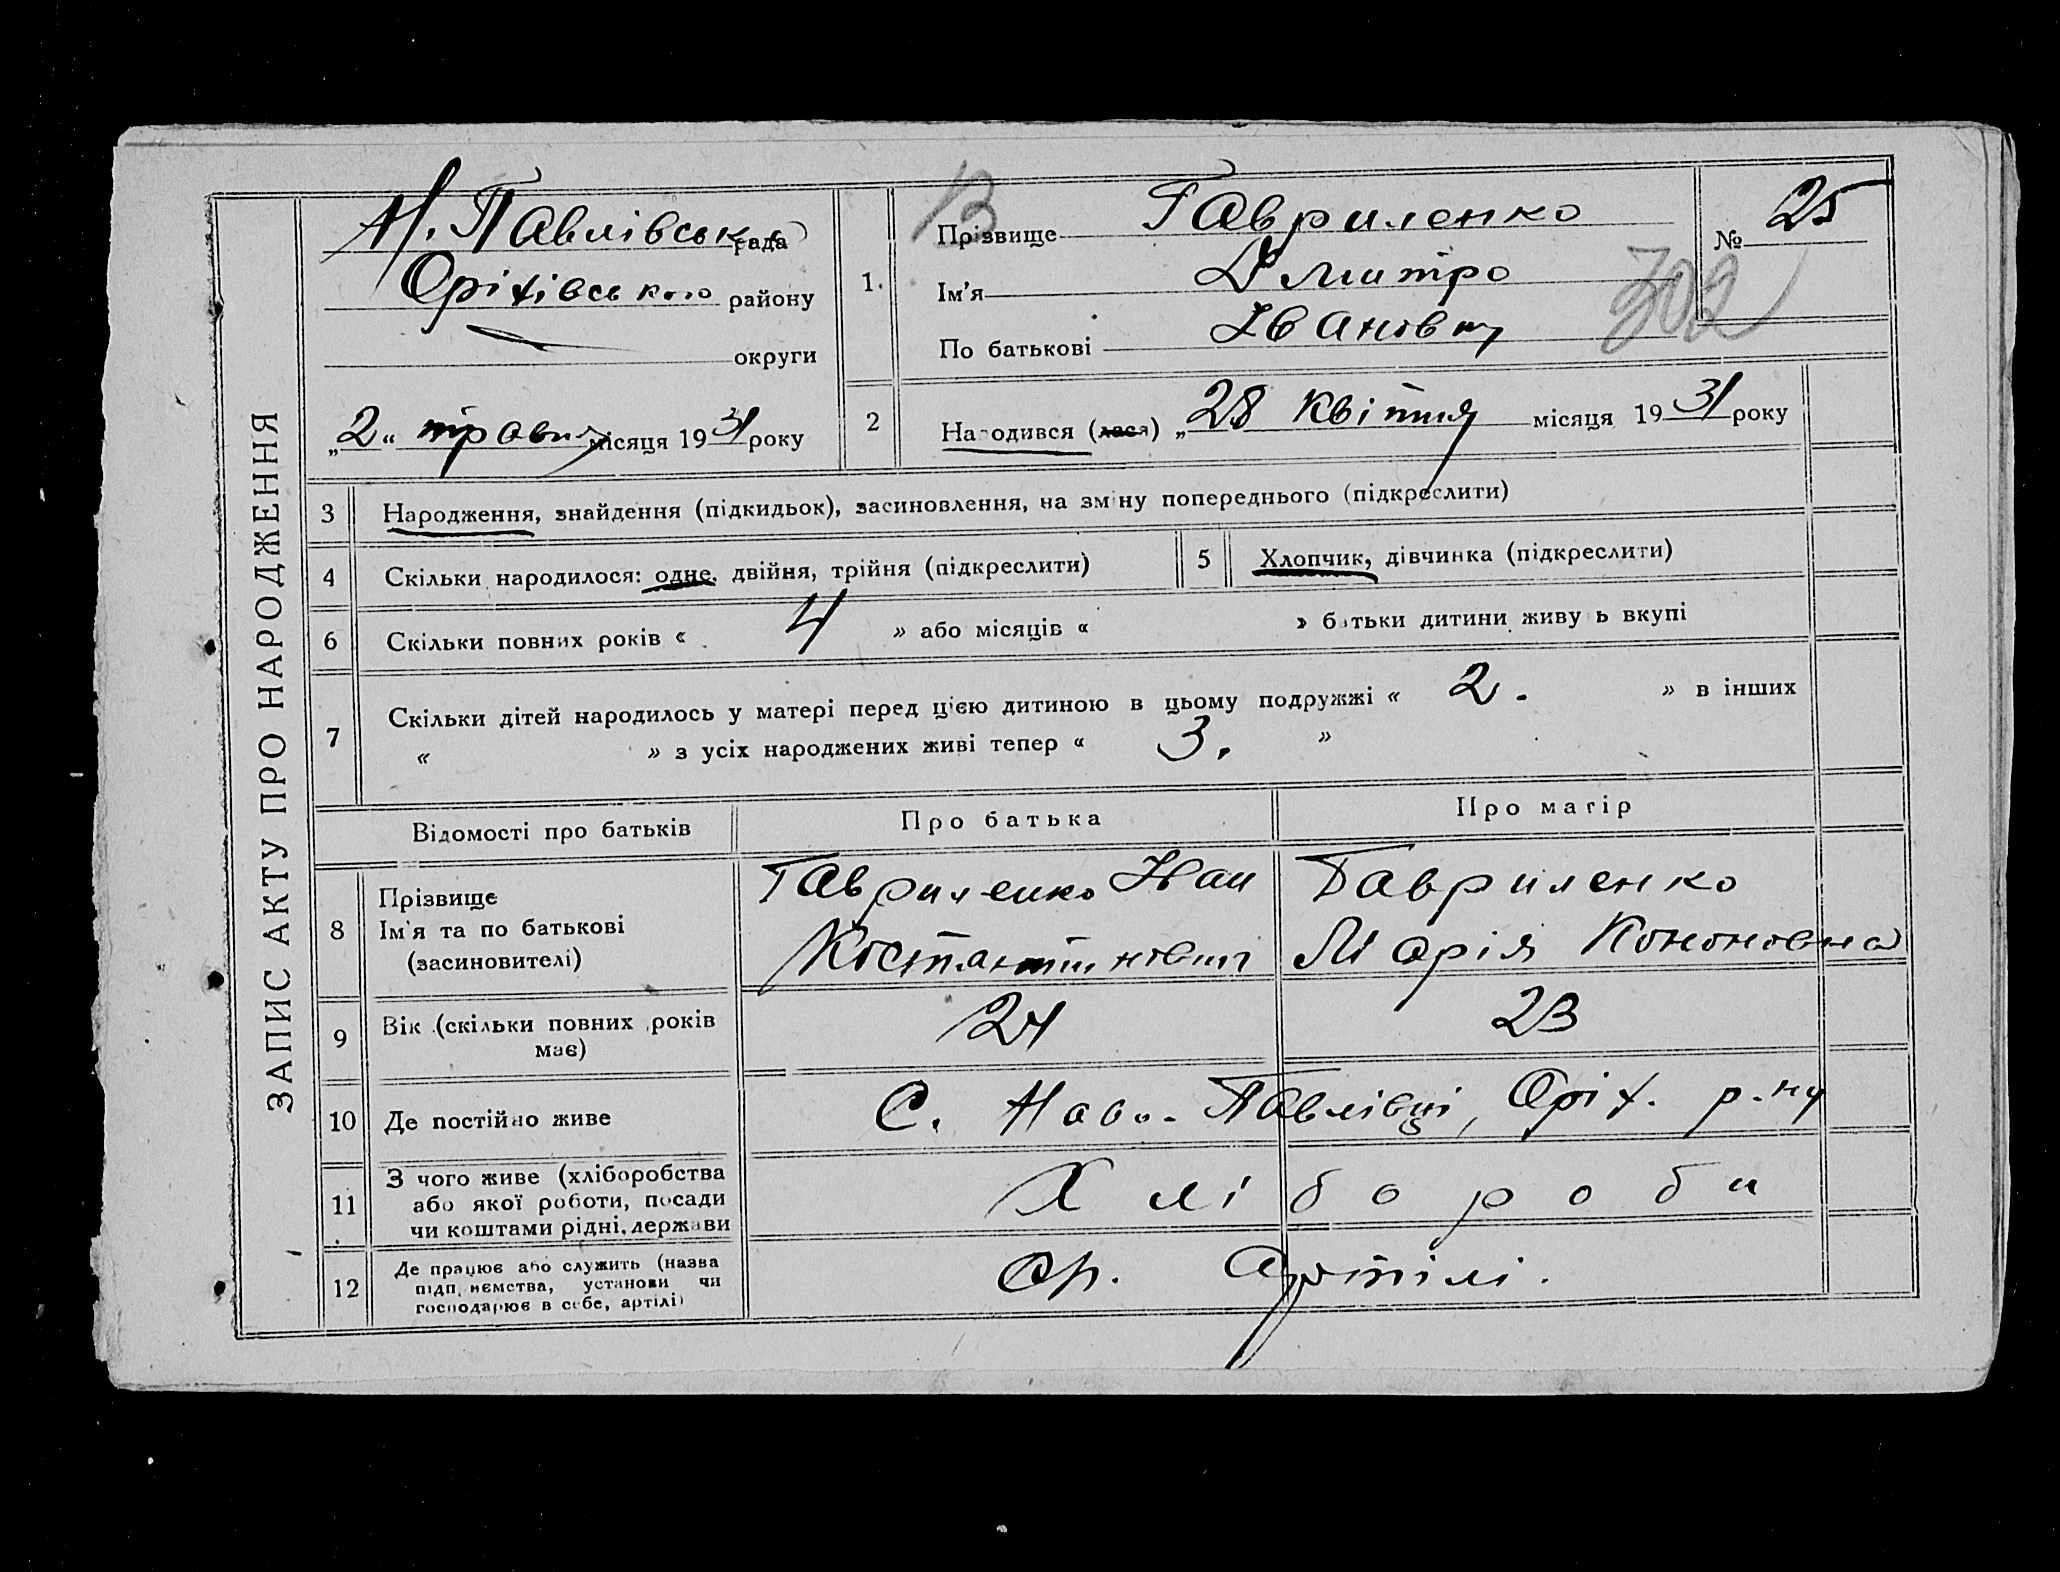 ЗАПИС АКТУ ПРО НАРОДЖЕННЯ
Н. Павлівська рада
Оріхівського району
округи
„2“ травня місяця 1931 року
13
1. Прізвище Гавриленко
Ім'я Дмитро
По батькові Іванович
№ 25
302
2 Народився (лася) „28 квітня місяця 1931 року
3 Народження, знайдення (підкидьок), засиновлення, на зміну попереднього (підкреслити)
4 Скільки народилося: одне, двійня, трійня (підкреслити)
5 Хлопчик, дівчинка (підкреслити)
6 Скільки повних років « 4 » або місяців « » батьки дитини живуть вкупі
7 Скільки дітей народилось у матері перед цією дитиною в цьому подружжі « 2. » в інших
« » з усіх народжених живі тепер « 3. »
Відомості про батьків Про батька Про матір
8 Прізвище
Ім'я та по батькові
(засиновителі)
Гавриленко Иван
Костянтинович
Гавриленко
Марія Кононовна
9 Вік (скільки повних років
має)
24 23
10 Де постійно живе С. Ново-Павлівці, Оріх. р-ну
11 З чого живе (хліборобства
або якої роботи, посади
чи коштами рідні, держави
Хлібороби
12 Де працює або служить (назва
підприємства, установи чи
господарює в себе, артілі)
Ор. Артілі.